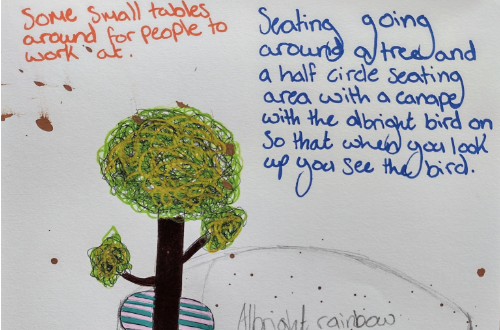 Some Small tables
around for people to
work at.
Seating going
around a tree and
a half circle seating
area with a canape
with the albright bird on
So that when you look
up you see the bird.
Albright rainbow